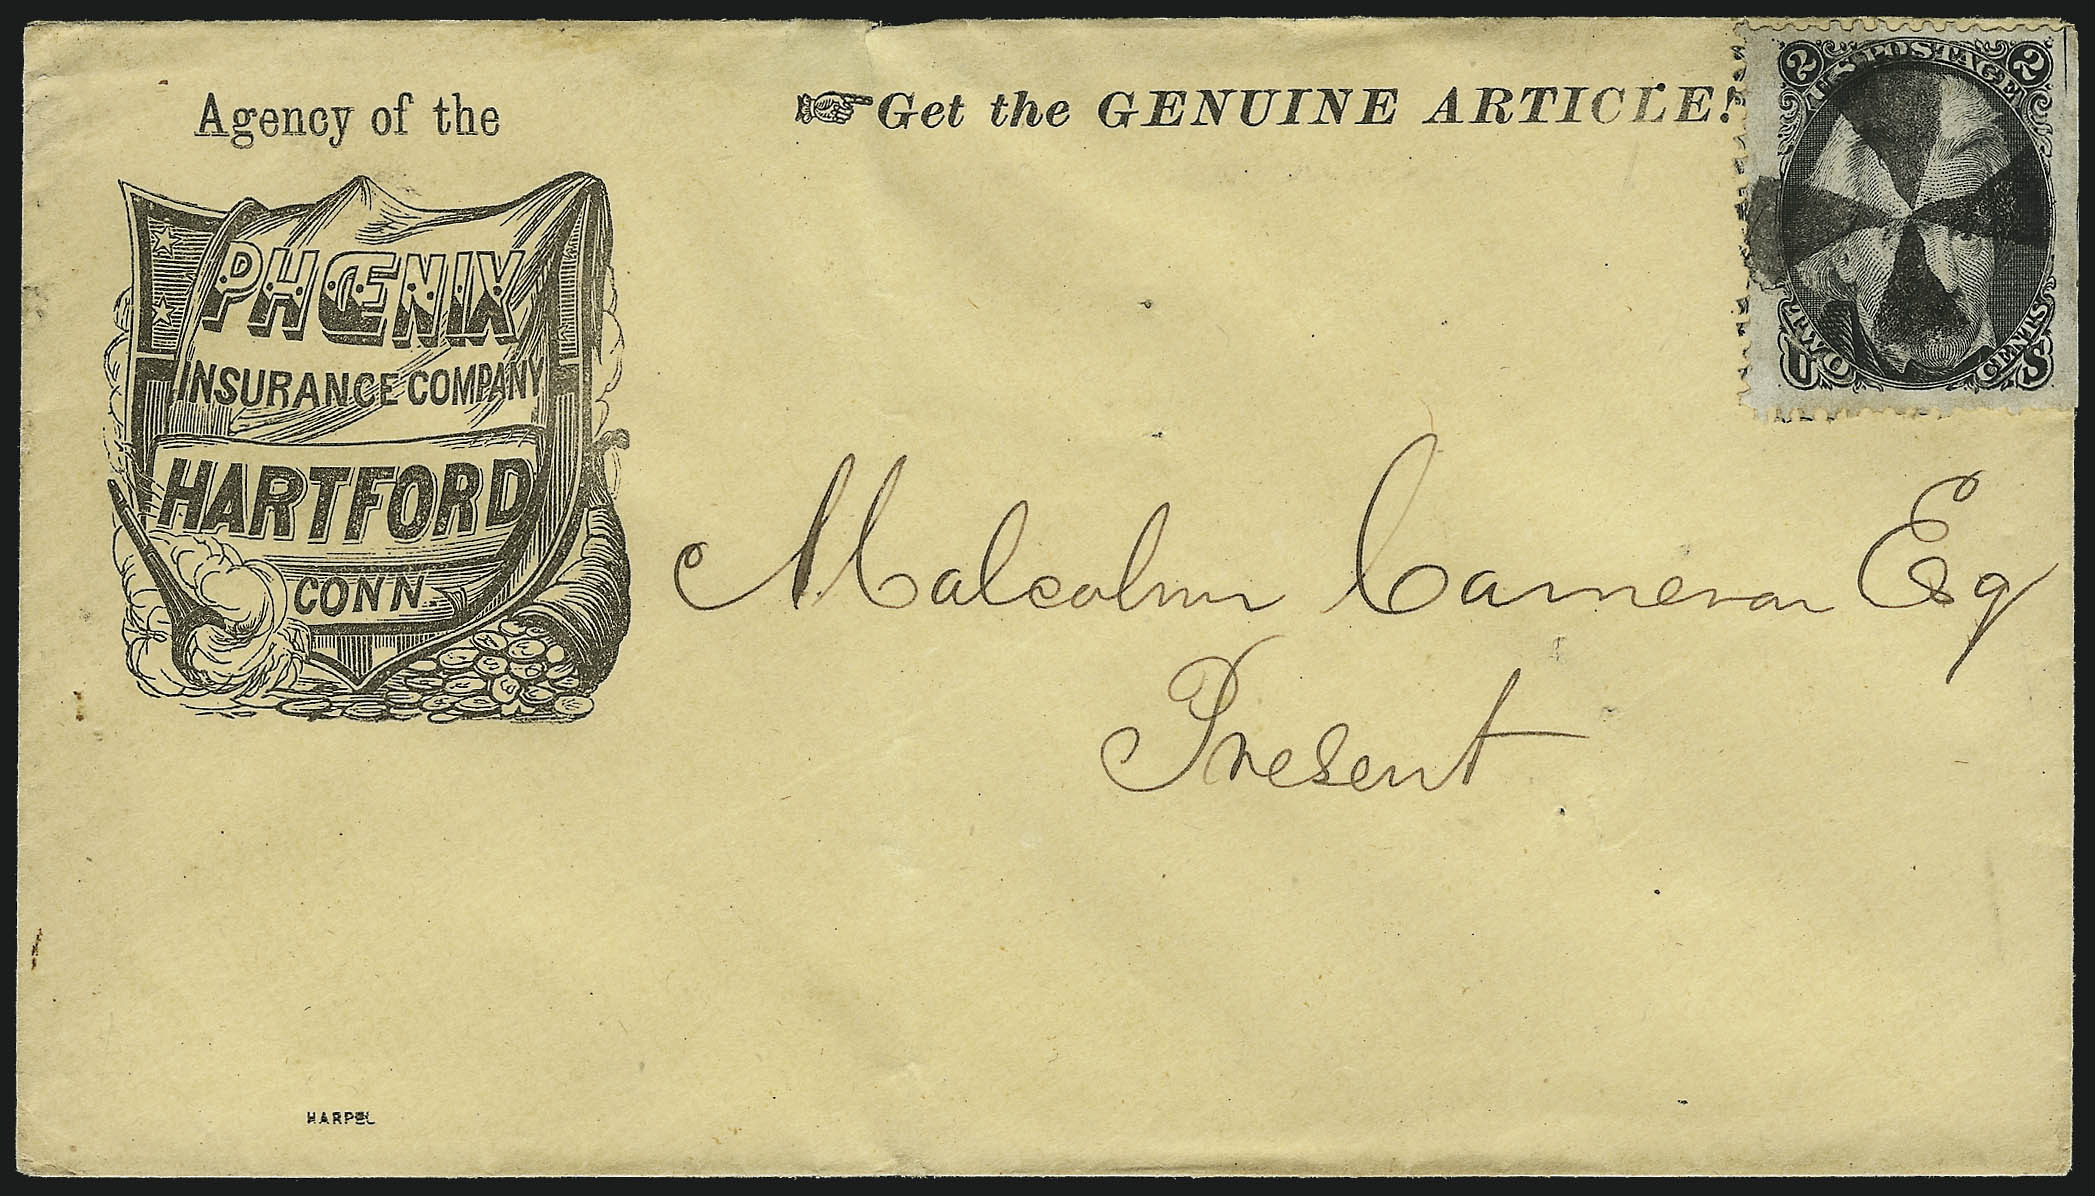 Agency of the
PHŒNIX
INSURANCE COMPANY
HARTFORD
CONN.
Get the GENUINE ARTICLE!
2 2
U.S. POSTAGE
TWO CENTS
U S
Malcolm Cameron Esq
Present
HARPEL